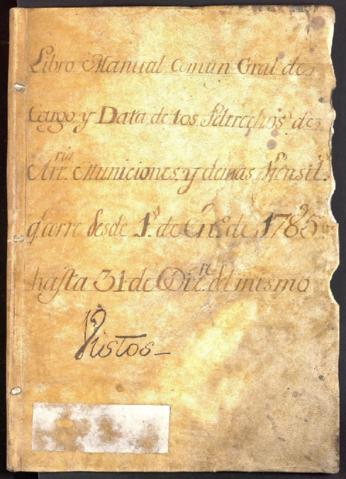 Libro Manual comun Gral de
Cargo y Data de los Peltrechos de
Art.ria Municiones y demas Vtensil.s
q.e corre desde 1.o de En.o de 1785
hasta 31 de Diz.re del mismo
Vistos